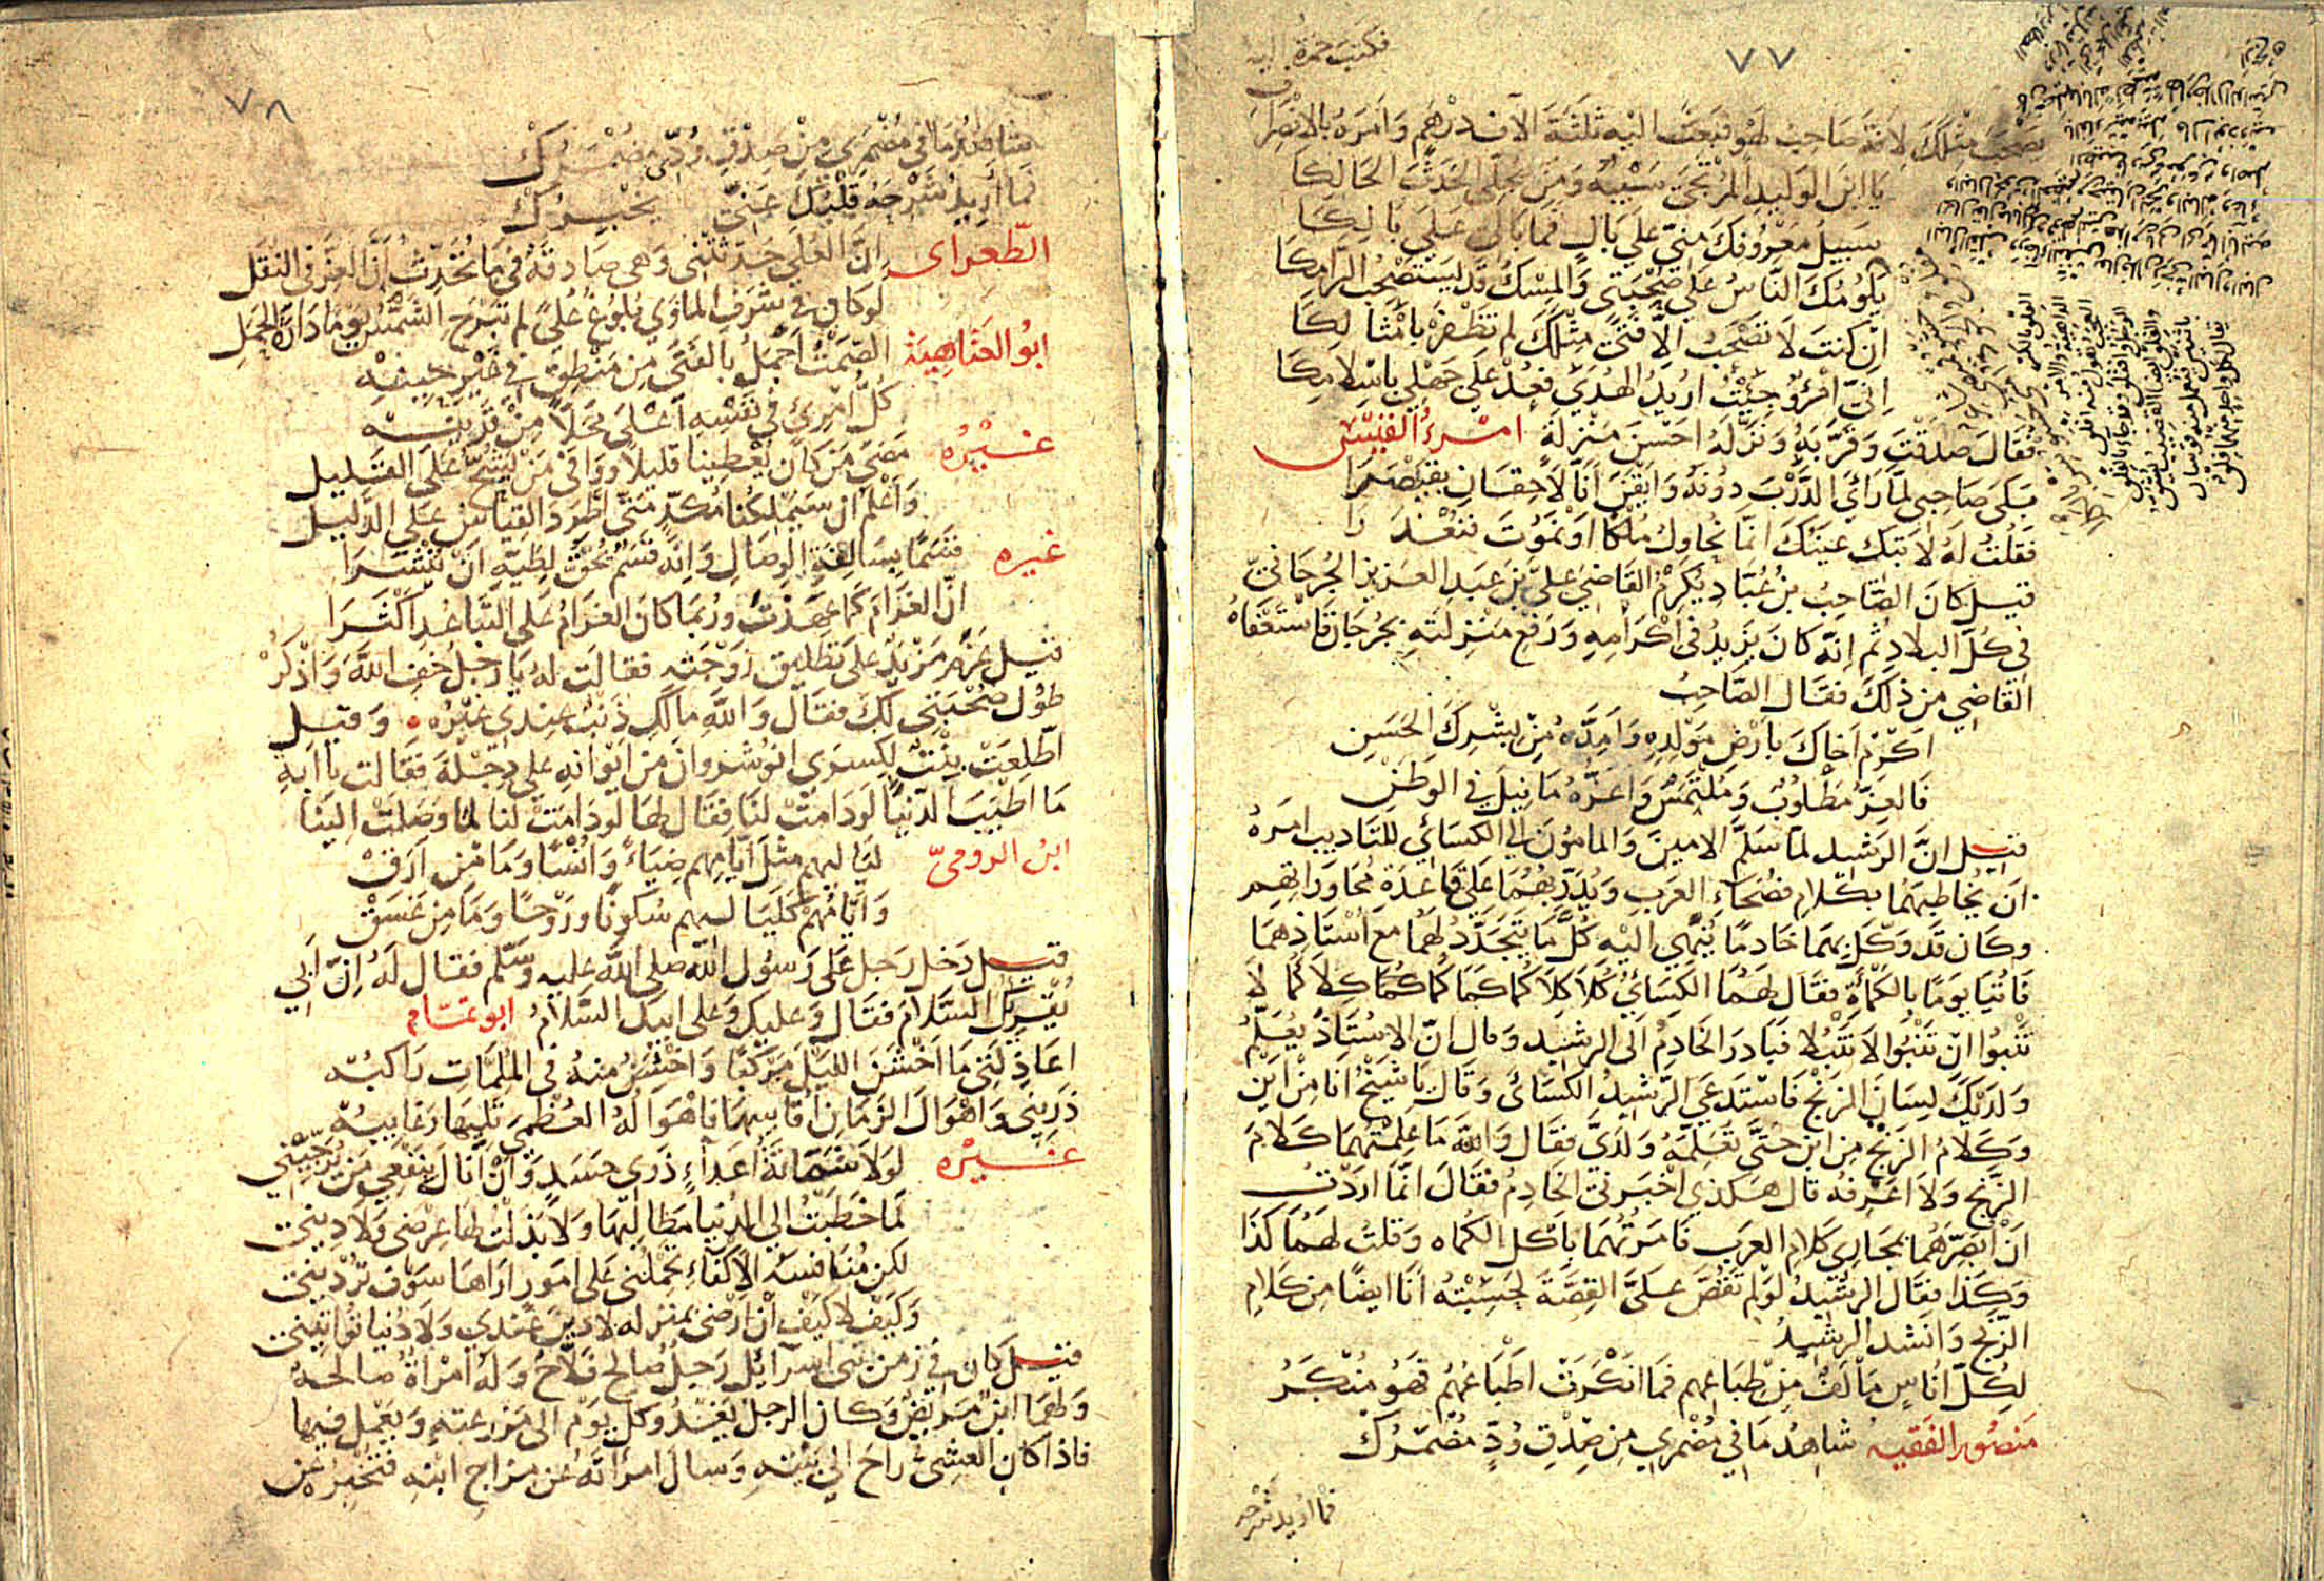 ٧٧
فكتب حمزة اليه
يصحب مثلك لانه صاحب لهو فبعث اليه ثلثة آلاف درهم وامره بالانصراف
يا ابن الوليد المرتجى سيبه ومن يجلي الحدث الحالكا
سبيل معروفك مني على بال فما بالي على بالكا
يلومك الناس على صحبتي والمسك قد يستصحب الرامكا
ان كنت لا تصحب الا فتى مثلك لم تظفر بامثالكا
اني امرؤ جئت اريد الهدى فعد على جهلي باسلامكا
فقال صدقت وقربه ونزله احسن منزلة امرء القيس
بكى صاحبي لما رائ الدرب دونه وايقن انا لاحقان بقيصرا
فقلت له لا تبك عينك انما نحاول ملكا او نموت فنعذرا
قيل كان الصاحب بن عباد يكرم القاضي علي بن عبد العزيز الجرجاني
في كل البلاد ثم انه كان يزيد في اكرامه ورفع منزلته بجرجان فاستعفاه
القاضي من ذلك فقال الصاحب
اكرم اخاك بارض مولده وامده من بشرك الحسن
فالعز مطلوب وملتمس واعزه ما نيل في الوطن
قيل ان الرشيد لما سلم الامين والمامون الي الكسائي للتاديب امره
ان يخاطبهما بكلام فصحاء العرب ويدربهما على قاعدة محاوراتهم
وكان قد وكل بهما خادما ينهي اليه كل ما يتجدد لهما مع استاذهما
فاتيا يوما بالكمأة فقال لهما الكسائي كلا كلا كما كما كما كما كلا كما لا
تنبوا ان تنبوا لا تنبلا فبادر الخادم الى الرشيد وقال ان الاستاذ يعلم
ولديك لسان الزنج فاستدعي الرشيد الكسائي وقال يا شيخ انا من اين
وكلام الزنج من اين حتى تعلمه ولدي فقال والله ما علمتهما كلام
الزنج ولا اعرفه قال هكذى اخبرني الخادم فقال انما اردت
ان ابصرهما بمجاري كلام العرب فامرتهما باكل الكماه وقلت لهما كذا
وكذا فقال الرشيد لو لم تقص على القصة لحسبته انا ايضا من كلام
الزنج وانشد الرشيد
لكل اناس مألف من طباعهم فما انكرت اطباعهم فهو منكر
منصور الفقيه شاهد ما في مضمري من صدق ود مضمرك
فما اريد شرحه
٧٨
شاهد ما في مضمري من صدق ودي مضمرك
فما اريد شرحه قلبك عني يخبرك
الطغراى ان العلى حدثتني وهي صادقة في ما تحدث ان العز في النقل
لو كان في شرف الماوى بلوغ على لم تبرح الشمس يوما دارة الحمل
ابو العتاهية الصمت اجمل بالفتى من منطق في غير حينه
كل امرئ في نفسه اعلى محلا من قرينه
غيره مضى من كان يعطينا قليلا ووافى من يشح على القليل
واعلم ان سيملكنا مكد متى اطرد القياس على الدليل
غيره قسما بسالفة الوصال وانه قسم يحق لطيه ان ينشرا
ان الغرام كما عهدت وربما كان الغرام على التباعد اكثرا
قيل عزم مزيد على تطليق زوجته فقالت له يا رجل خف الله واذكر
طول صحبتي لك فقال والله مالك ذنب عندي غيره وقيل
اطلعت بنت لكسرى انوشروان من ايوانه على دجلة فقالت يا ابه
ما اطيب الدنيا لو دامت لنا فقال لها لو دامت لنا لما وصلت الينا
ابن الرومي لياليهم مثل ايامهم ضياء وانسا وما من ارق
وايامهم كلياليهم سكونا وروحا وما من غسق
قيل دخل رجل على رسول الله صلى الله عليه وسلم فقال له ان ابي
يقريك السلام فقال وعليك وعلى ابيك السلام ابو تمام
اعاذلتي ما اخشن الليل مركبا واخشن منه في الملمات راكبه
ذريني واهوال الزمان اقاسيها فاهواله العظمى تليها رغايبه
غيره لولا شماتة اعداء ذوي حسد وان انال بنفعي من يرجيني
لما خطبت الي الدنيا مطالبها ولا بذلت لها عرضي ولا ديني
لكن منافسة الاكفاء تحملني على امور اراها سوف ترديني
وكيف لا كيف ان ارضى بمنزله لا دين عندي ولا دنيا تواتيني
قيل كان في زمن بني اسرآئل رجل صالح فلاح وله امراة صالحة
ولهما ابن مريض وكان الرجل يغدو كل يوم الى مزرعته ويعمل فيها
فاذا كان العشي راح الي بيته وسال امراته عن مزاج ابنه فتخبره عن